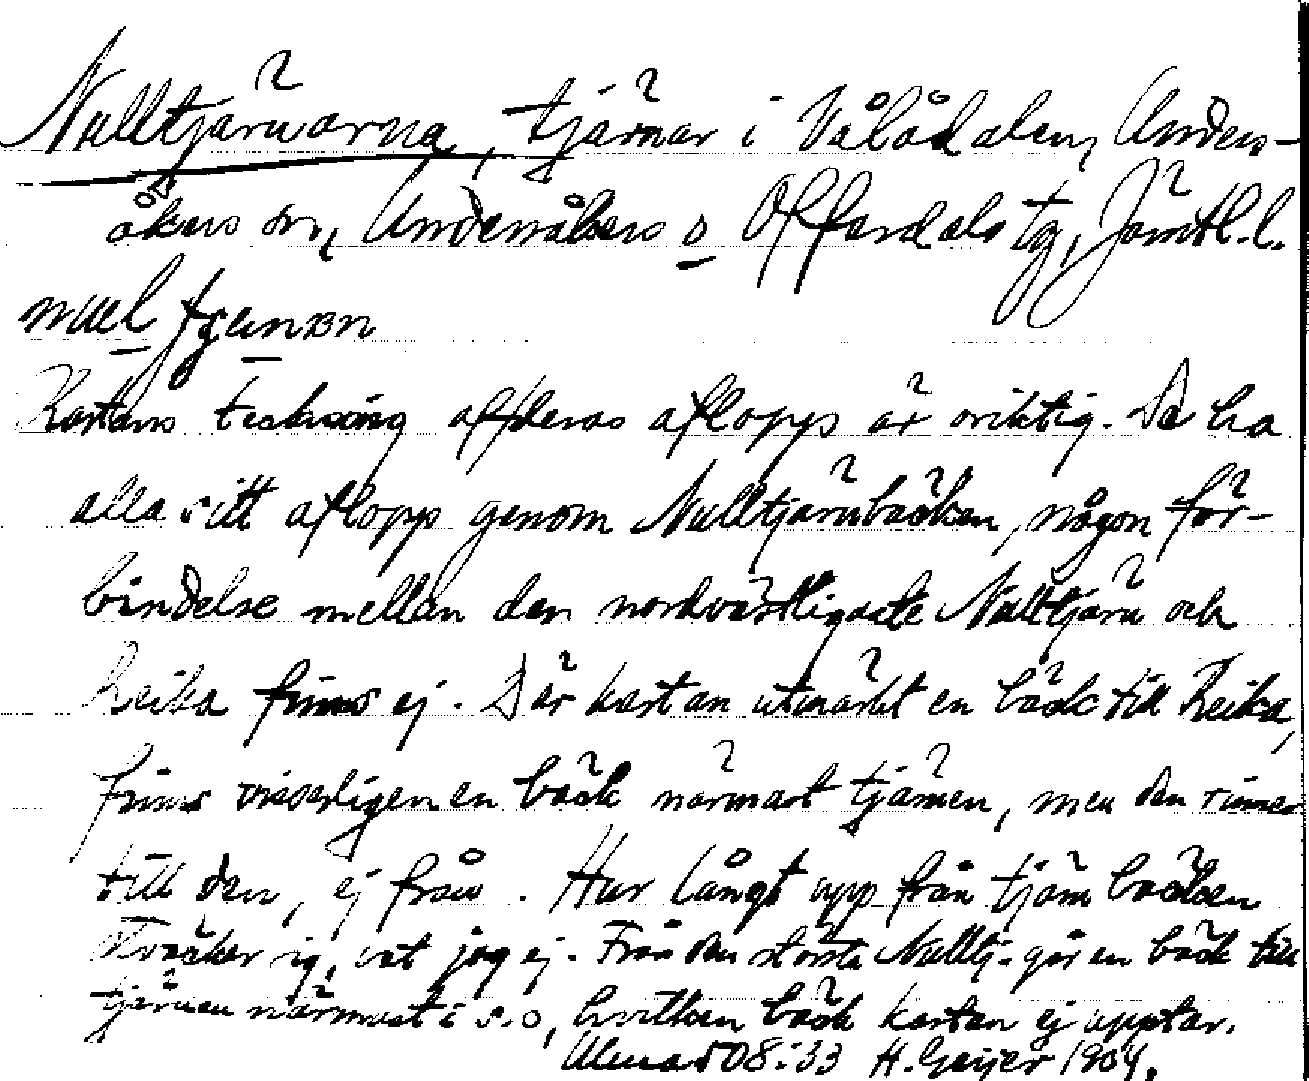 Nulltjärnarna, tjärnar i Vålådalen, Unders-
åkers sn, Undersåkers o Offerdals tg, Jämtl. l.
Kartans teckning af deras aflopp är oriktig. De ha
alla sitt aflopp genom Nulltjärnbäcken, någon för-
bindelse mellan den nordvästligaste Nulltjärn och
Reika finns ej. Där kartan utmärkt en bäck till Reika,
finns visserligen en bäck närmast tjärnen, men den rinner
till den, ej från. Hur långt upp från tjärn bäcken
sträcker sig, vet jag ej. Från den största Nulltj. går en bäck till
tjärnen närmast i s.o, hvilken bäck kartan ej upptar.
H. Geijer 1904.